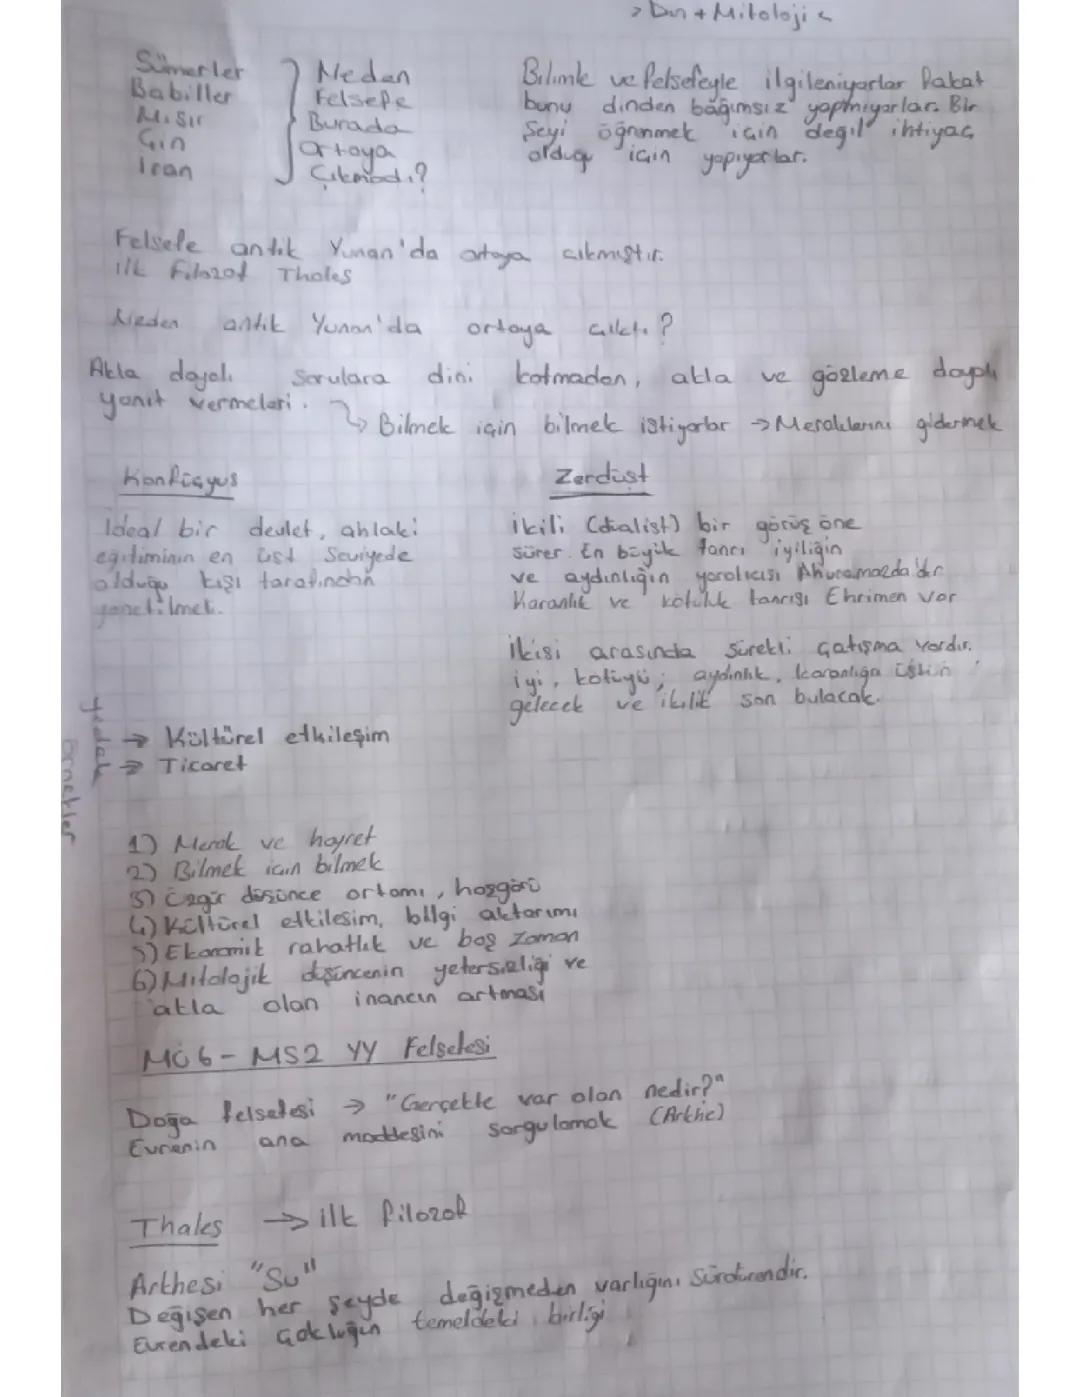 > Din + Mitoloji <
Sümerler
Babiller
Mısır
Çin
İran
Neden
Felsefe
Burada
Ortaya
Çıkmadı?
Bilimle ve felsefeyle ilgileniyorlar fakat
bunu dinden bağımsız yapmıyorlar. Bir
şeyi öğrenmek için değil ihtiyaç
olduğu için yapıyorlar.
Felsefe antik Yunan'da ortaya çıkmıştır.
ilk filozof Thales
Neden antik Yunan'da ortaya çıktı?
Akla dayalı Sorulara dini katmadan, akla ve gözleme dayalı
yanıt vermeleri.
↳ Bilmek için bilmek istiyorlar → Meraklarını gidermek
Konfüçyus
İdeal bir devlet, ahlaki
eğitiminin en üst seviyede
olduğu kişi tarafından
yönetilmeli.
Zerdüşt
ikili (dualist) bir görüş öne
sürer. En büyük tanrı iyiliğin
ve aydınlığın yaratıcısı Ahuramazda'dır
Karanlık ve kötülük tanrısı Ehrimen var
İkisi arasında sürekli çatışma vardır.
iyi, kötüyü; aydınlık, karanlığa üstün
gelecek ve ikilik son bulacak.
→ Kültürel etkileşim
→ Ticaret
örnekler
1) Merak ve hayret
2) Bilmek için bilmek
3) Özgür düşünce ortamı, hoşgörü
4) Kültürel etkileşim, bilgi aktarımı
5) Ekonomik rahatlık ve boş zaman
6) Mitolojik düşüncenin yetersizliği ve
akla olan inancın artması
MÖ 6 - MS 2 YY Felsefesi
Doğa felsefesi → "Gerçekte var olan nedir?"
Evrenin ana maddesini sorgulamak (Arkhe)
Thales → ilk filozof
Arkhesi "Su"
Değişen her şeyde değişmeden varlığını sürdürendir.
Evrendeki çokluğun temeldeki birliği